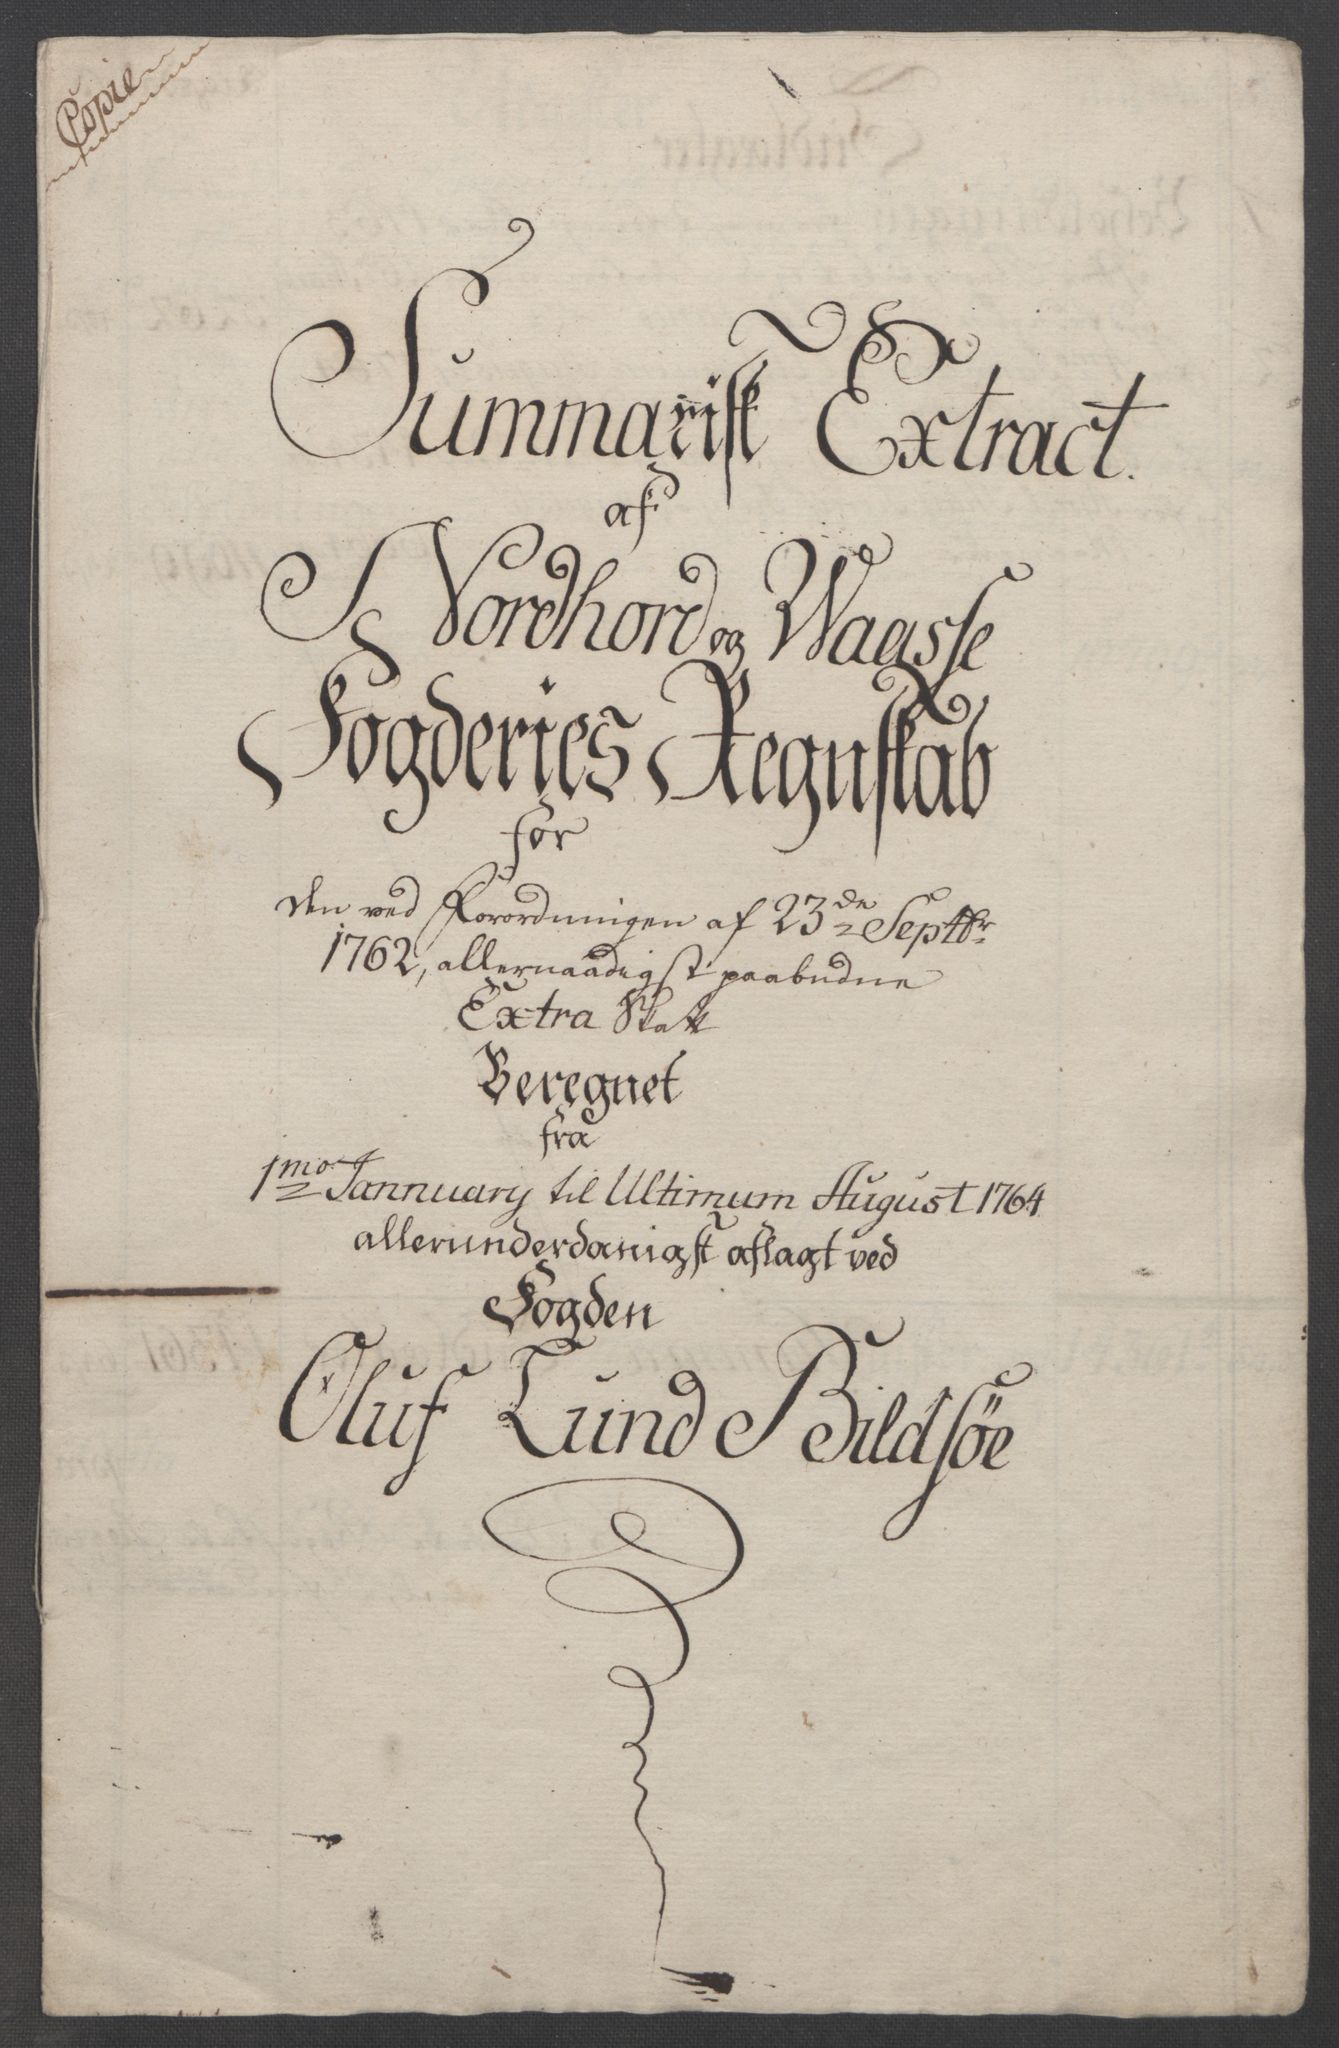 Copie
Summarisk Extract.
af
Nordhord og Waasse
Fogderies Regnskab
for
den ved Forordningen af 23de Septbr
1762, allernaadigst paabudne
Extra Skatt
Beregnet
fra
1mo Jannuary til Ultimum August 1764
allerunderdanigst aflagt ved
Fogden
Oluf Lund Bildsöe